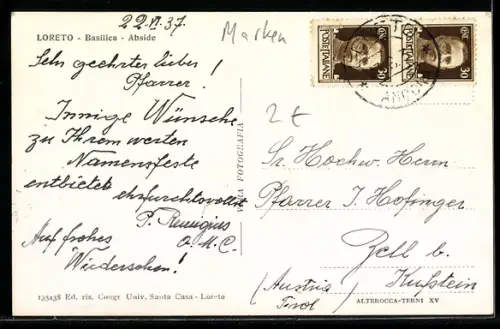 22.VI.37.
Marken
LORETO - Basilica - Abside
Sehr geehrter lieber
Pfarrer!
Innige Wünsche
zu Ihrem werten
Namensfeste
entbietet ehrfurchtsvollst
P. Remigius
O. M. C.
Auf frohes
Wiedersehen!
133438 Ed. ris. Congr. Univ. Santa Casa - Loreto
VERA FOTOGRAFIA
POSTE ITALIANE
30
POSTE ITALIANE
CENT 30
ANCONA
2 €
Sr. Hochw. Herrn
Pfarrer J. Hofinger
Zell b.
Kufstein
(Austria
Tirol)
ALTEROCCA-TERNI XV